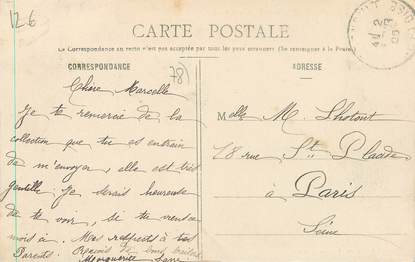 126
CARTE POSTALE
La Correspondance au verso n'est pas acceptée par tous les pays étrangers (Se renseigner à la Poste)
CORRESPONDANCE
(78)
ADRESSE
Chère Marcelle
Je te remercie de la
collection que tu es entrain
de m'envoyer, elle est très
gentille. Je serais heureuse
de te voir, si tu
mois ci. Mes respects à tes
Parents. Reçois de bons baisers
Marguerite
Melle M. Lhotont
28 rue St. Placide
à Paris
Seine